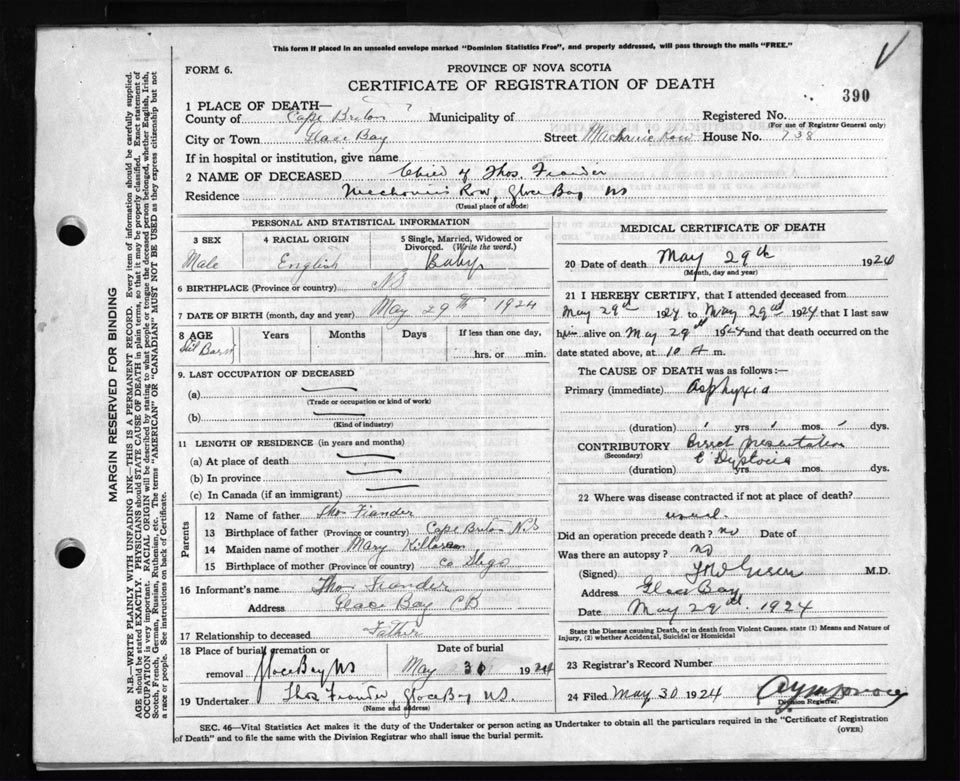 This form if placed in an unsealed envelope marked "Dominion Statistics Free", and properly addressed, will pass through the mails "FREE."
FORM 6.
PROVINCE OF NOVA SCOTIA
CERTIFICATE OF REGISTRATION OF DEATH
390
1 PLACE OF DEATH—
County of Cape Breton Municipality of Registered No.
(For use of Registrar General only)
City or Town Glace Bay Street Mechanic Row House No. 738
If in hospital or institution, give name
2 NAME OF DECEASED Child of Thos. Fiander
Residence Mechanics Row, Glace Bay NS
(Usual place of abode)
PERSONAL AND STATISTICAL INFORMATION
3 SEX 4 RACIAL ORIGIN 5 Single, Married, Widowed or Divorced. (Write the word.)
Male English Baby
6 BIRTHPLACE (Province or country) NS
7 DATE OF BIRTH (month, day and year) May 29th 1924
8 AGE Years Months Days If less than one day,
Still Born hrs. or min.
9. LAST OCCUPATION OF DECEASED
(a)
(Trade or occupation or kind of work)
(b)
(Kind of industry)
11 LENGTH OF RESIDENCE (in years and months)
(a) At place of death
(b) In province
(c) In Canada (if an immigrant)
Parents
12 Name of father Thos Fiander
13 Birthplace of father (Province or country) Cape Breton NS
14 Maiden name of mother Mary
15 Birthplace of mother (Province or country) Co
16 Informant's name Thos Fiander
Address Glace Bay CB
17 Relationship to deceased Father
18 Place of burial cremation or removal Glace Bay NS
Date of burial
May 30 1924
19 Undertaker Thos Fiander, Glace Bay NS.
(Name and address)
MEDICAL CERTIFICATE OF DEATH
20 Date of death May 29th 1924
(Month, day and year)
21 I HEREBY CERTIFY, that I attended deceased from
May 29th 1924 to May 29th 1924 that I last saw
him alive on May 29th 1924 and that death occurred on
date stated above, at 10 A m.
The CAUSE OF DEATH was as follows:—
Primary (immediate) Asphyxia
(duration) yrs. mos. dys.
CONTRIBUTORY presentation
(Secondary) c Dystocia
(duration) yrs. mos. dys.
22 Where was disease contracted if not at place of death?
usual
Did an operation precede death? no Date of
Was there an autopsy? no
(Signed) M.D.
Address Glace Bay
Date May 29th 1924
State the Disease causing Death, or in death from Violent Causes, state (1) Means and Nature of Injury, (2) whether Accidental, Suicidal or Homicidal
23 Registrar's Record Number
24 Filed May 30 1924
Division Registrar.
SEC. 46—Vital Statistics Act makes it the duty of the Undertaker or person acting as Undertaker to obtain all the particulars required in the "Certificate of Registration
of Death" and to file the same with the Division Registrar who shall issue the burial permit.
(OVER)
MARGIN RESERVED FOR BINDING
N.B.—WRITE PLAINLY WITH UNFADING INK—THIS IS A PERMANENT RECORD. Every item of information should be carefully supplied.
AGE should be stated EXACTLY. PHYSICIANS should STATE CAUSE OF DEATH in plain terms, so that it may be properly classified. Exact statement of
OCCUPATION is very important. RACIAL ORIGIN will be described by stating to what people or tongue the deceased person belonged, whether English, Irish,
Scotch, French, German, Russian, Ruthenian, etc. The terms "AMERICAN" or "CANADIAN" MUST NOT BE USED as they express citizenship but not
a race or people. See instructions on back of Certificate.